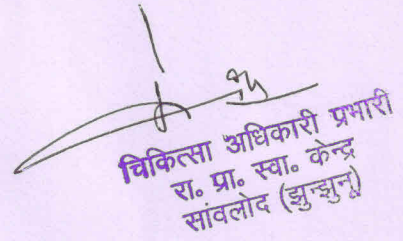 चिकित्सा अधिकारी प्रभारी
रा॰ प्रा॰ स्वा॰ केन्द्र
सांवलोद (झुन्झुनू)